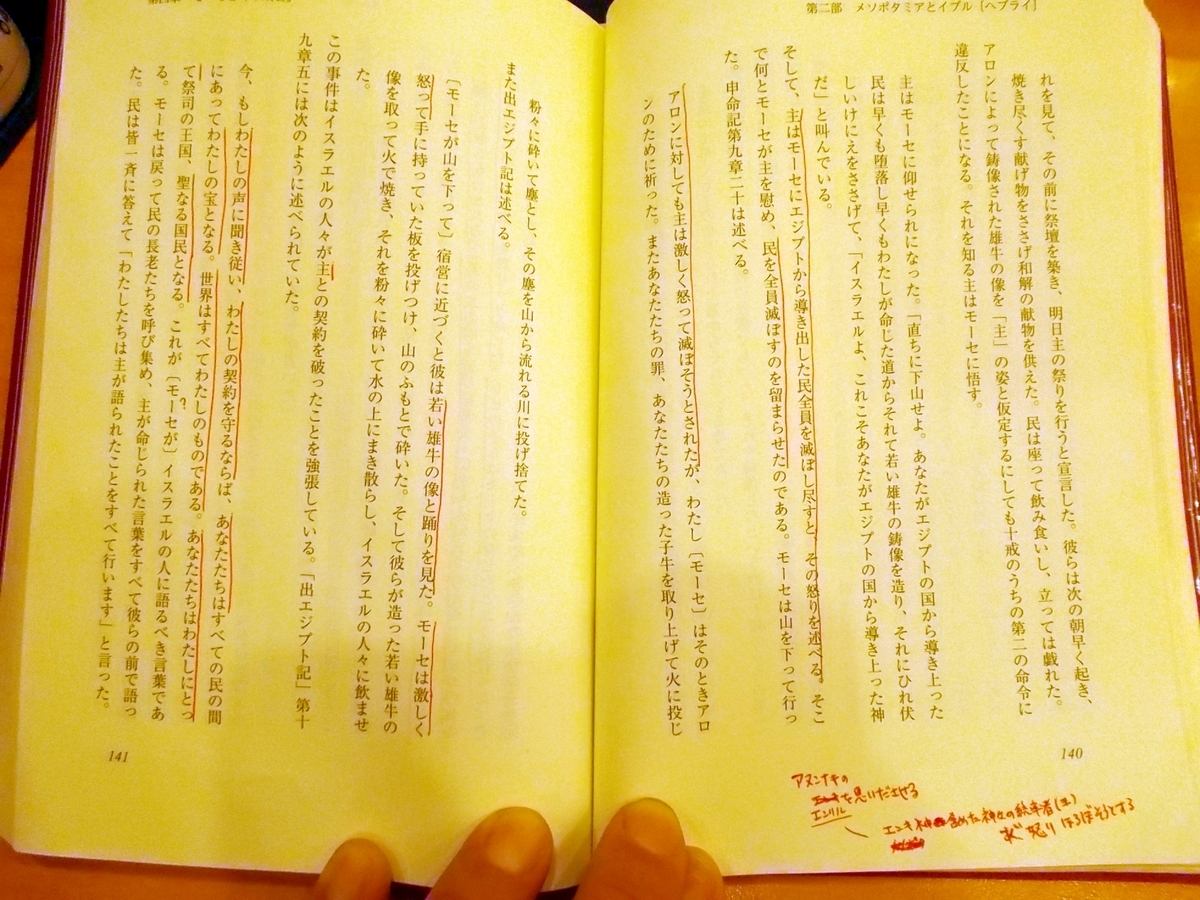 第二部 メソポタミアとイブル[ヘブライ]
れを見て、その前に祭壇を築き、明日主の祭りを行うと宣言した。彼らは次の朝早く起き、
焼き尽くす献げ物をささげ和解の献物を供えた。民は座って飲み食いし、立っては戯れた。
アロンによって鋳像された雄牛の像を「主」の姿と仮定するにしても十戒のうちの第二の命令に
違反したことになる。それを知る主はモーセに悟す。
主はモーセに仰せられになった。「直ちに下山せよ。あなたがエジプトの国から導き上った
民は早くも堕落し早くもわたしが命じた道からそれて若い雄牛の鋳像を造り、それにひれ伏
しいけにえをささげて、「イスラエルよ、これこそあなたがエジプトの国から導き上った神
だ」と叫んでいる。
そして、主はモーセにエジプトから導き出した民全員を滅ぼし尽すと、その怒りを述べる。そこ
で何とモーセが主を慰め、民を全員滅ぼすのを留まらせたのである。モーセは山を下って行っ
た。申命記第九章二十は述べる。
アロンに対しても主は激しく怒って滅ぼそうとされたが、わたし〔モーセ〕はそのときアロ
ンのために祈った。またあなたたちの罪、あなたたちの造った子牛を取り上げて火に投じ
140
アヌンナキの
を思いださせる
エンリル
エンキ神 含めた神々の統率者(主)
が怒り ほろぼそうとする
粉々に砕いて塵とし、その塵を山から流れる川に投げ捨てた。
また出エジプト記は述べる。
〔モーセが山を下って〕宿営に近づくと彼は若い雄牛の像と踊りを見た。モーセは激しく
怒って手に持っていた板を投げつけ、山のふもとで砕いた。そして彼らが造った若い雄牛の
像を取って火で焼き、それを粉々に砕いて水の上にまき散らし、イスラエルの人々に飲ませ
た。
この事件はイスラエルの人々が主との契約を破ったことを強張している。「出エジプト記」第十
九章五には次のように述べられていた。
今、もしわたしの声に聞き従い、わたしの契約を守るならば、あなたたちはすべての民の間
にあってわたしの宝となる。世界はすべてわたしのものである。あなたたちはわたしにとっ
て祭司の王国、聖なる国民となる。これが〔モーセが〕イスラエルの人に語るべき言葉であ
?
る。モーセは戻って民の長老たちを呼び集め、主が命じられた言葉をすべて彼らの前で語っ
た。民は皆一斉に答えて「わたしたちは主が語られたことをすべて行います」と言った。
141